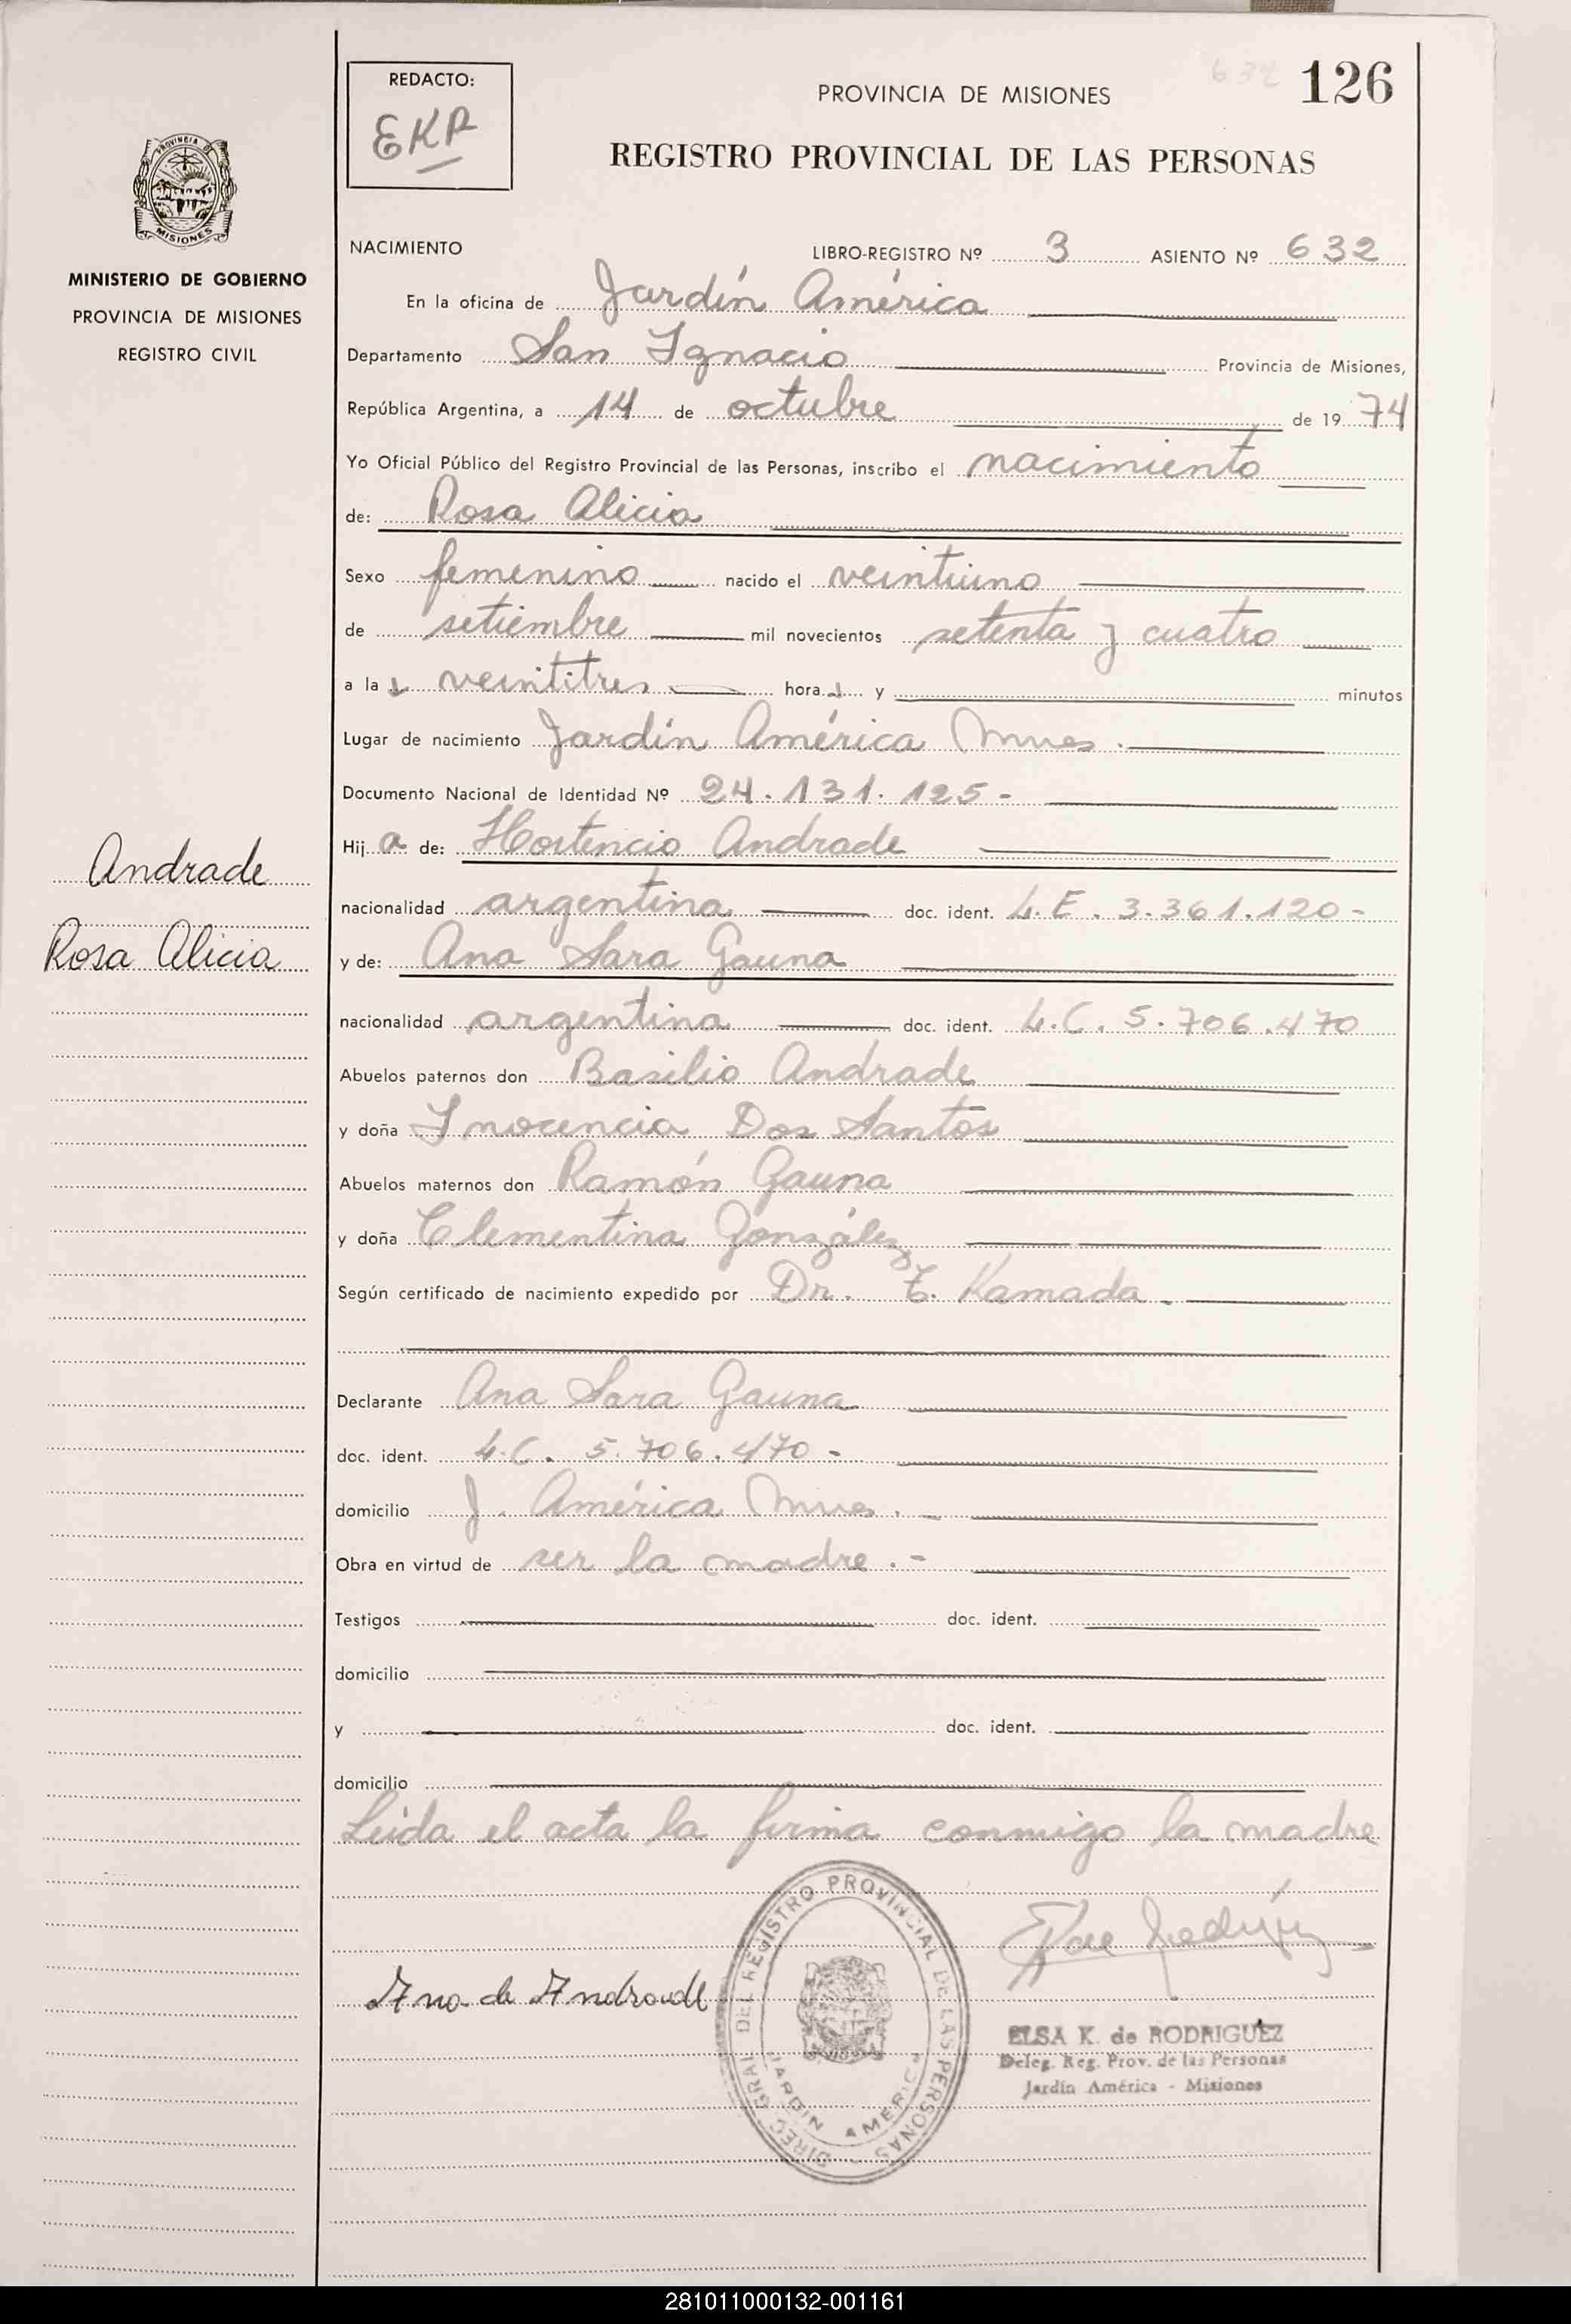 REDACTO:
EKR
PROVINCIA DE MISIONES
632 126
REGISTRO PROVINCIAL DE LAS PERSONAS
PROVINCIA DE
MISIONES
MINISTERIO DE GOBIERNO
PROVINCIA DE MISIONES
REGISTRO CIVIL
NACIMIENTO LIBRO-REGISTRO Nº 3 ASIENTO Nº 632
En la oficina de Jardín América
Departamento San Ignacio Provincia de Misiones,
República Argentina, a 14 de octubre de 19 74
Yo Oficial Público del Registro Provincial de las Personas, inscribo el nacimiento
de: Rosa Alicia
Sexo femenino nacido el veintiuno
de setiembre mil novecientos setenta y cuatro
a la s veintitres hora s y minutos
Lugar de nacimiento Jardín América Mnes.
Documento Nacional de Identidad Nº 24.131.125-
Hij a de: Hortencio Andrade
Andrade
nacionalidad argentina doc. ident. L.E. 3.361.120-
Rosa Alicia
y de: Ana Sara Gauna
nacionalidad argentina doc. ident. L.C. 5.706.470
Abuelos paternos don Basilio Andrade
y doña Inocencia Dos Santos
Abuelos maternos don Ramón Gauna
y doña Clementina González
Según certificado de nacimiento expedido por Dr. T. Kamada.
Declarante Ana Sara Gauna
doc. ident. L.C. 5.706.470-
domicilio J. América Mnes.-
Obra en virtud de ser la madre.-
Testigos doc. ident.
domicilio
y doc. ident.
domicilio
Leida el acta la firma conmigo la madre
Ana de Andrade
DIREC. GRAL. DEL REGISTRO PROVINCIAL DE LAS PERSONAS
JARDIN AMERICA
ELSA K. de RODRIGUEZ
Deleg. Reg. Prov. de las Personas
Jardín América - Misiones
281011000132-001161